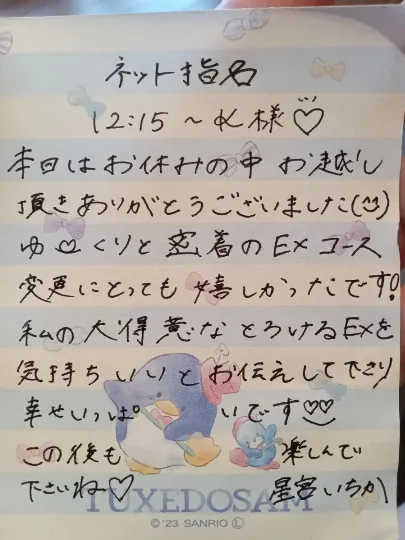 ネット指名
12:15～α様♡
本日はお休みの中お越し
頂きありがとうございました(^^)
ゆっくりと密着のEXコース
変更にとっても嬉しかったです!
私の大得意なとろけるEXを
気持ちいいとお伝えして下さり
幸せいっぱいです♡
この後も楽しんで
下さいね♡ 星宮いちか
TUXEDOSAM
©'23 SANRIO Ⓛ